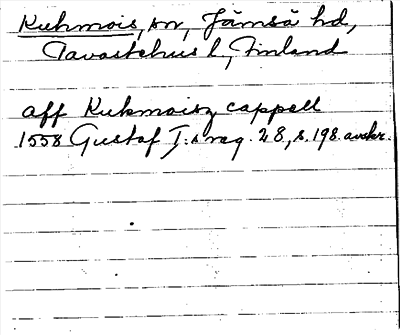 Kuhmois, sn, Jämsä hd,
Tavastehus l, Finland
aff Kukmoisz cappell
1558 Gustaf I:s reg. 28, s. 198. avskr.